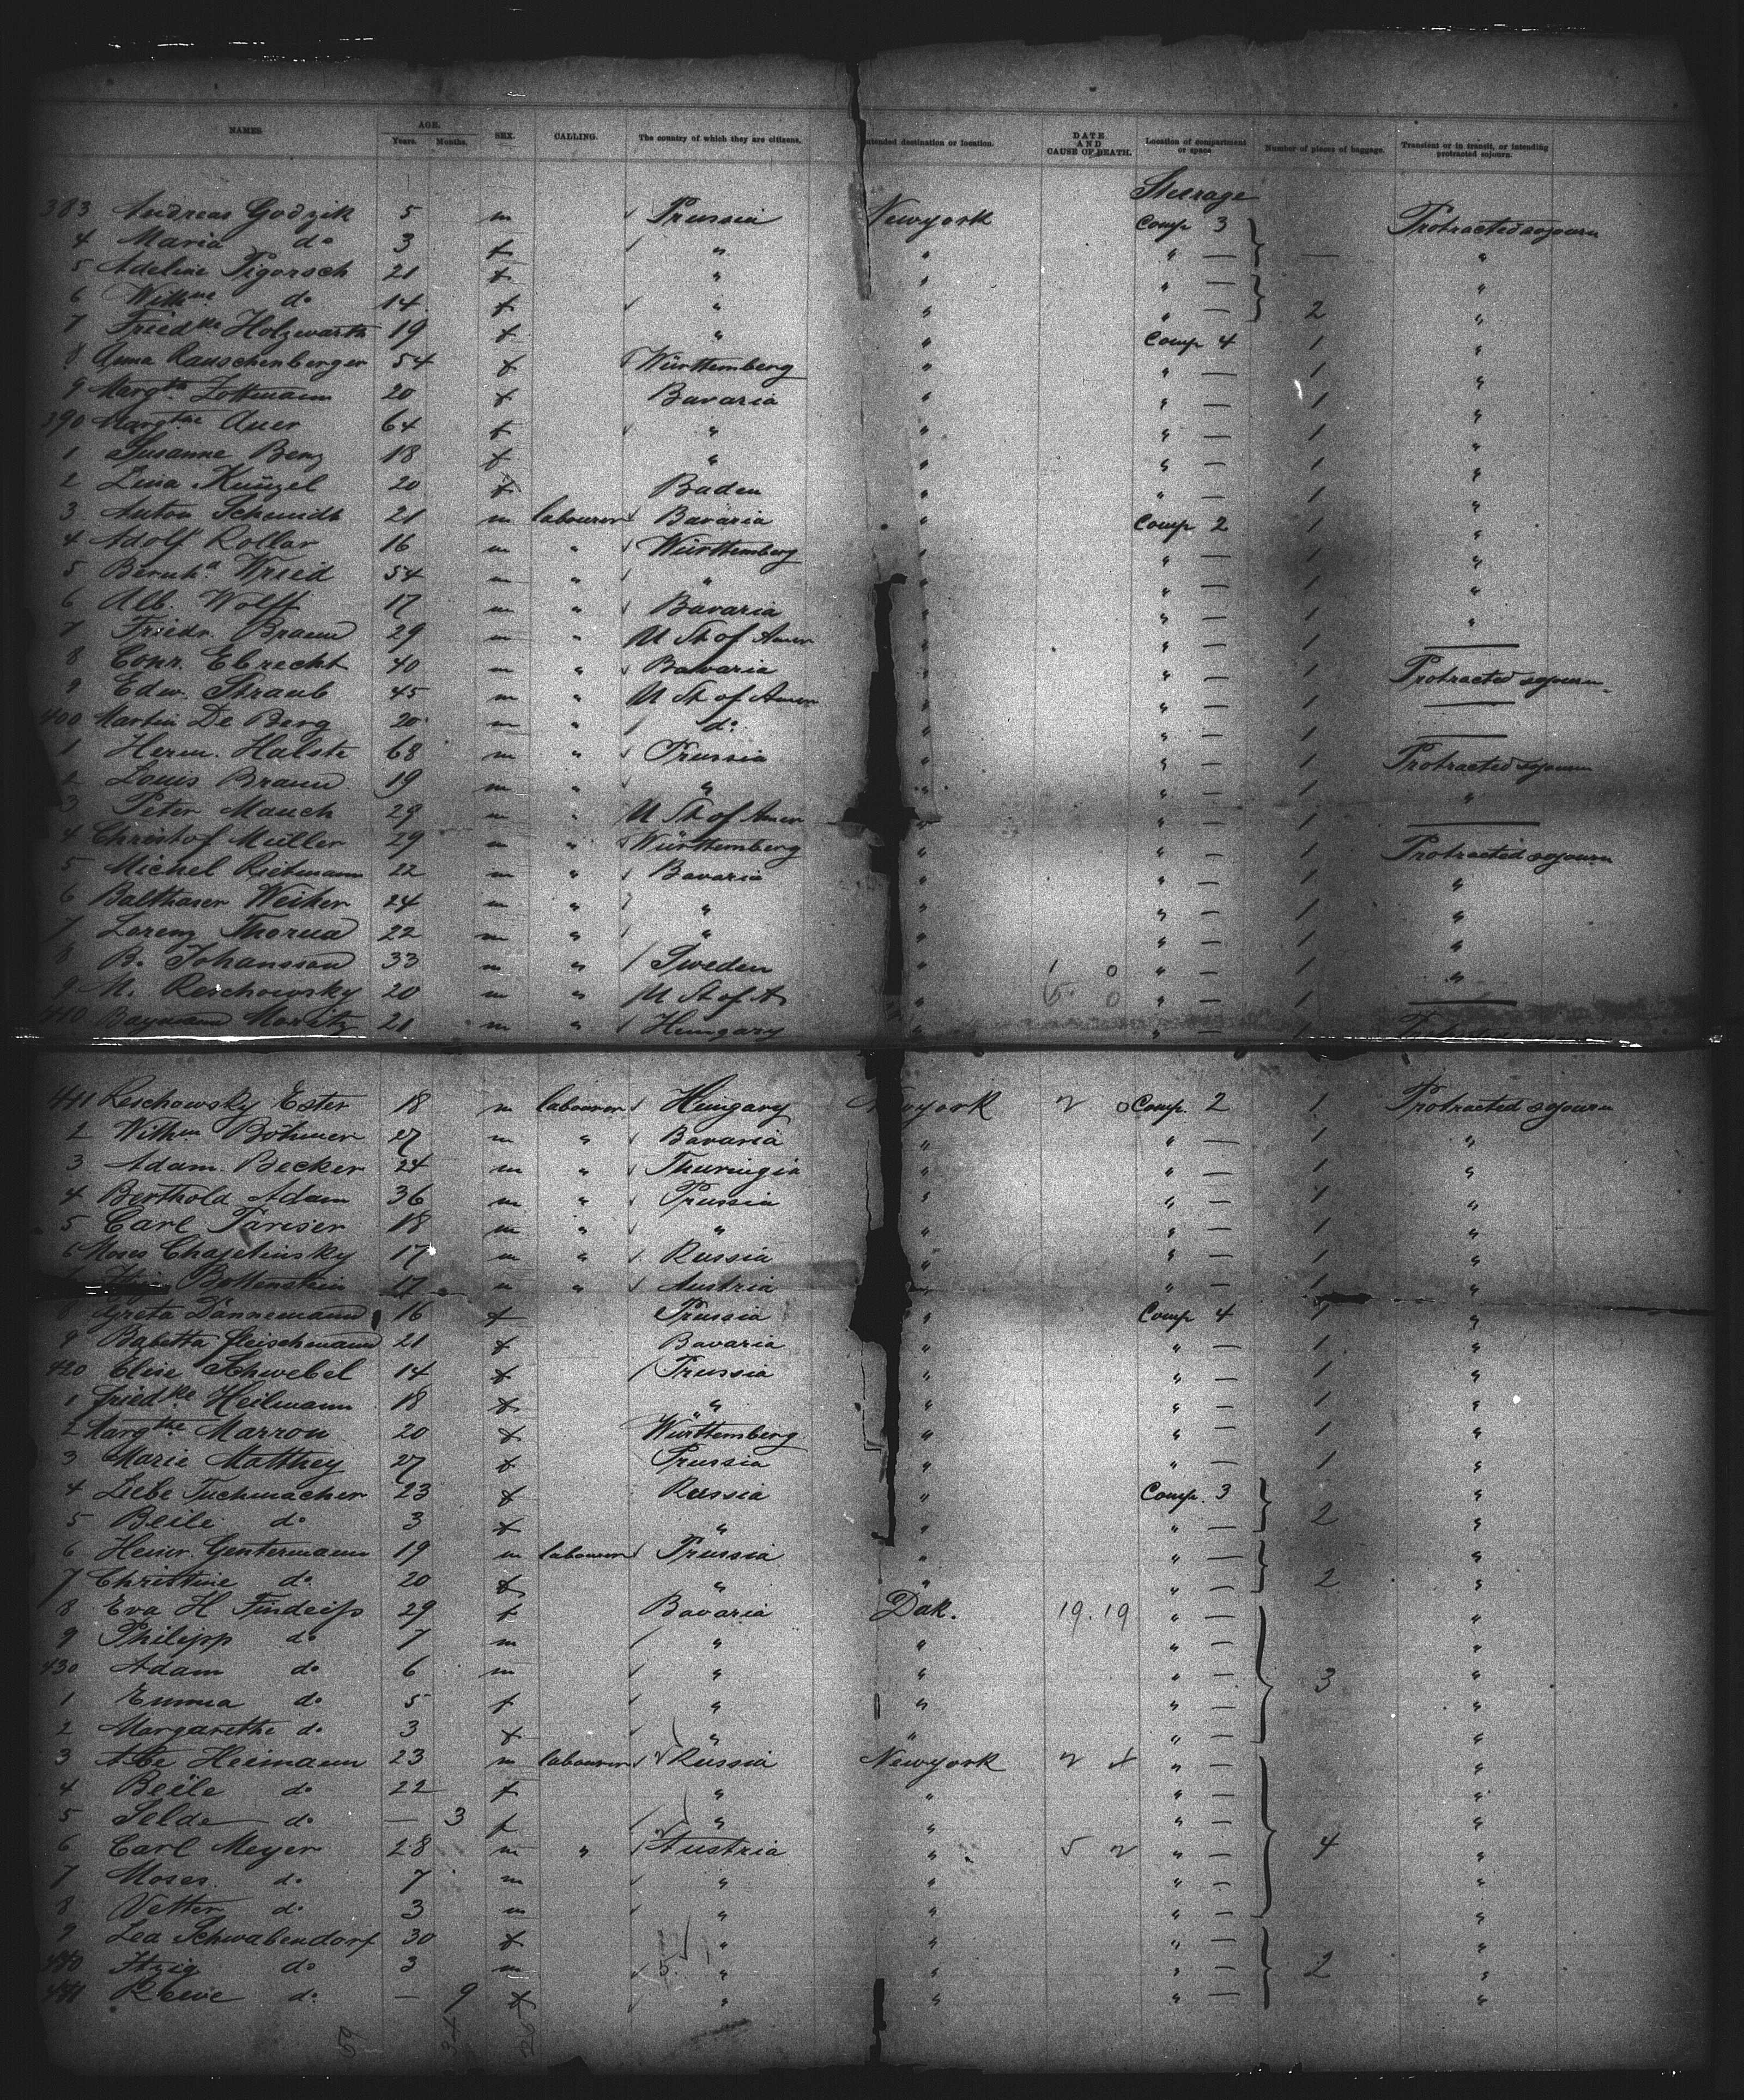 NAMES AGE. Years. Months. SEX. CALLING. The country of which they are citizens. Intended destination or location. DATE AND CAUSE OF DEATH. Location of compartment or space Number of pieces of baggage. Transient or in transit, or intending protracted sojourn.
Steerage
383 Andreas Godzik 5 m Prussia Newyork Comp 3 Protracted sojourn
4 Maria do 3 f " " " — — "
5 Adeline Pigorsch 21 f " " " — "
6 Wilhme do 14 f " " " — 2 "
7 Friedke Holzwarth 19 f " " Comp 4 1 "
8 Anna Rauschenberger 54 f Württemberg " " — 1 "
9 Margth Zottmann 20 f Bavaria " " — 1 "
390 Margthe Auer 64 f " " " — 1 "
1 Susanne Benz 18 f " " " — 1 "
2 Lina Künzel 20 f Baden " " — 1 "
3 Anton Schmidt 21 m labourer Bavaria " Comp 2 1 "
4 Adolf Rollar 16 m " Württemberg " " — 1 "
5 Bernhd. Wried 54 m " " " — 1 "
6 Alb. Wolff 17 m " Bavaria " — 1 "
7 Friedr. Braun 29 m " U St of Amer " — 1 —
8 Conr. Ebrecht 40 m " Bavaria " — 1 Protracted sojourn
9 Edw. Straub 45 m " U St of Amer " — 1 —
400 Martin De Berg 20 m " do " — 1 —
1 Herm. Halste 68 m " Prussia " " — 1 Protracted sojourn
2 Louis Braun 19 m " " " " — 1 "
3 Peter Mauch 29 m " U St of Amer " — 1 —
4 Christof Müller 29 m " Württemberg " " — 1 Protracted sojourn
5 Michel Rietmann 22 m " Bavaria " " — 1 "
6 Balthaser Weiker 24 m " " " " — 1 "
7 Lorenz Thorua 22 m " " " " — 1 "
8 B. Johansson 33 m " Sweden " " — 1 "
9 M. Reschowsky 20 m " U St of A " " — 1 —
410 Moritz 21 m " Hungary " " — 1
411 Reschowsky Ester 18 m labourer Hungary Newyork 2 0 Comp. 2 1 Protracted sojourn
2 Wilhm Böhmer 27 m " Bavaria " " — 1 "
3 Adam Becker 24 m " Thuringia " " — 1 "
4 Berthold Adam 36 m " Prussia " " — 1 "
5 Carl Pariser 18 m " " " " — 1 "
6 Moses Chajetinsky 17 m " Russia " " — 1 "
Bottenstein 17 m " Austria " " — 1 "
8 Greta Dannemann 16 f Prussia " Comp 4 1 "
9 Babetta Fleischmann 21 f Bavaria " " — 1 "
420 Elise Schwebel 14 f Prussia " " — 1 "
1 Friedke Heilmann 18 f " " " — 1 "
2 Margthe Marron 20 f Württemberg " " — 1 "
3 Marie Matthey 27 f Prussia " " — 1 "
4 Liebe Tuchmacher 23 f Russia " Comp. 3 "
5 Beile do 3 f " " " — 2 "
6 Heinr. Gentermann 19 m labourer Prussia " " — "
7 Christine do 20 f " " " — 2 "
8 Eva H Findeiß 29 f Bavaria Dak. 19.19 " — "
9 Philipp do 7 m " " " — "
430 Adam do 6 m " " " — 3 "
1 Emma do 5 f " " " — "
2 Margarethe do 3 f " " " — "
3 Abe Heimann 23 m labourer Russia Newyork 2 " — "
4 Beile do 22 f " " " — "
5 Selde do — 3 f " " " — "
6 Carl Meyer 28 m " Austria " 5 2 " — 4 "
7 Moses do 7 m " " " — "
8 Vetter do 3 m " " " — "
9 Lea Schwabendorf 30 f " " " — "
440 Itzig do 3 m " " " — 2 "
441 Reive do — 9 f " " " — "